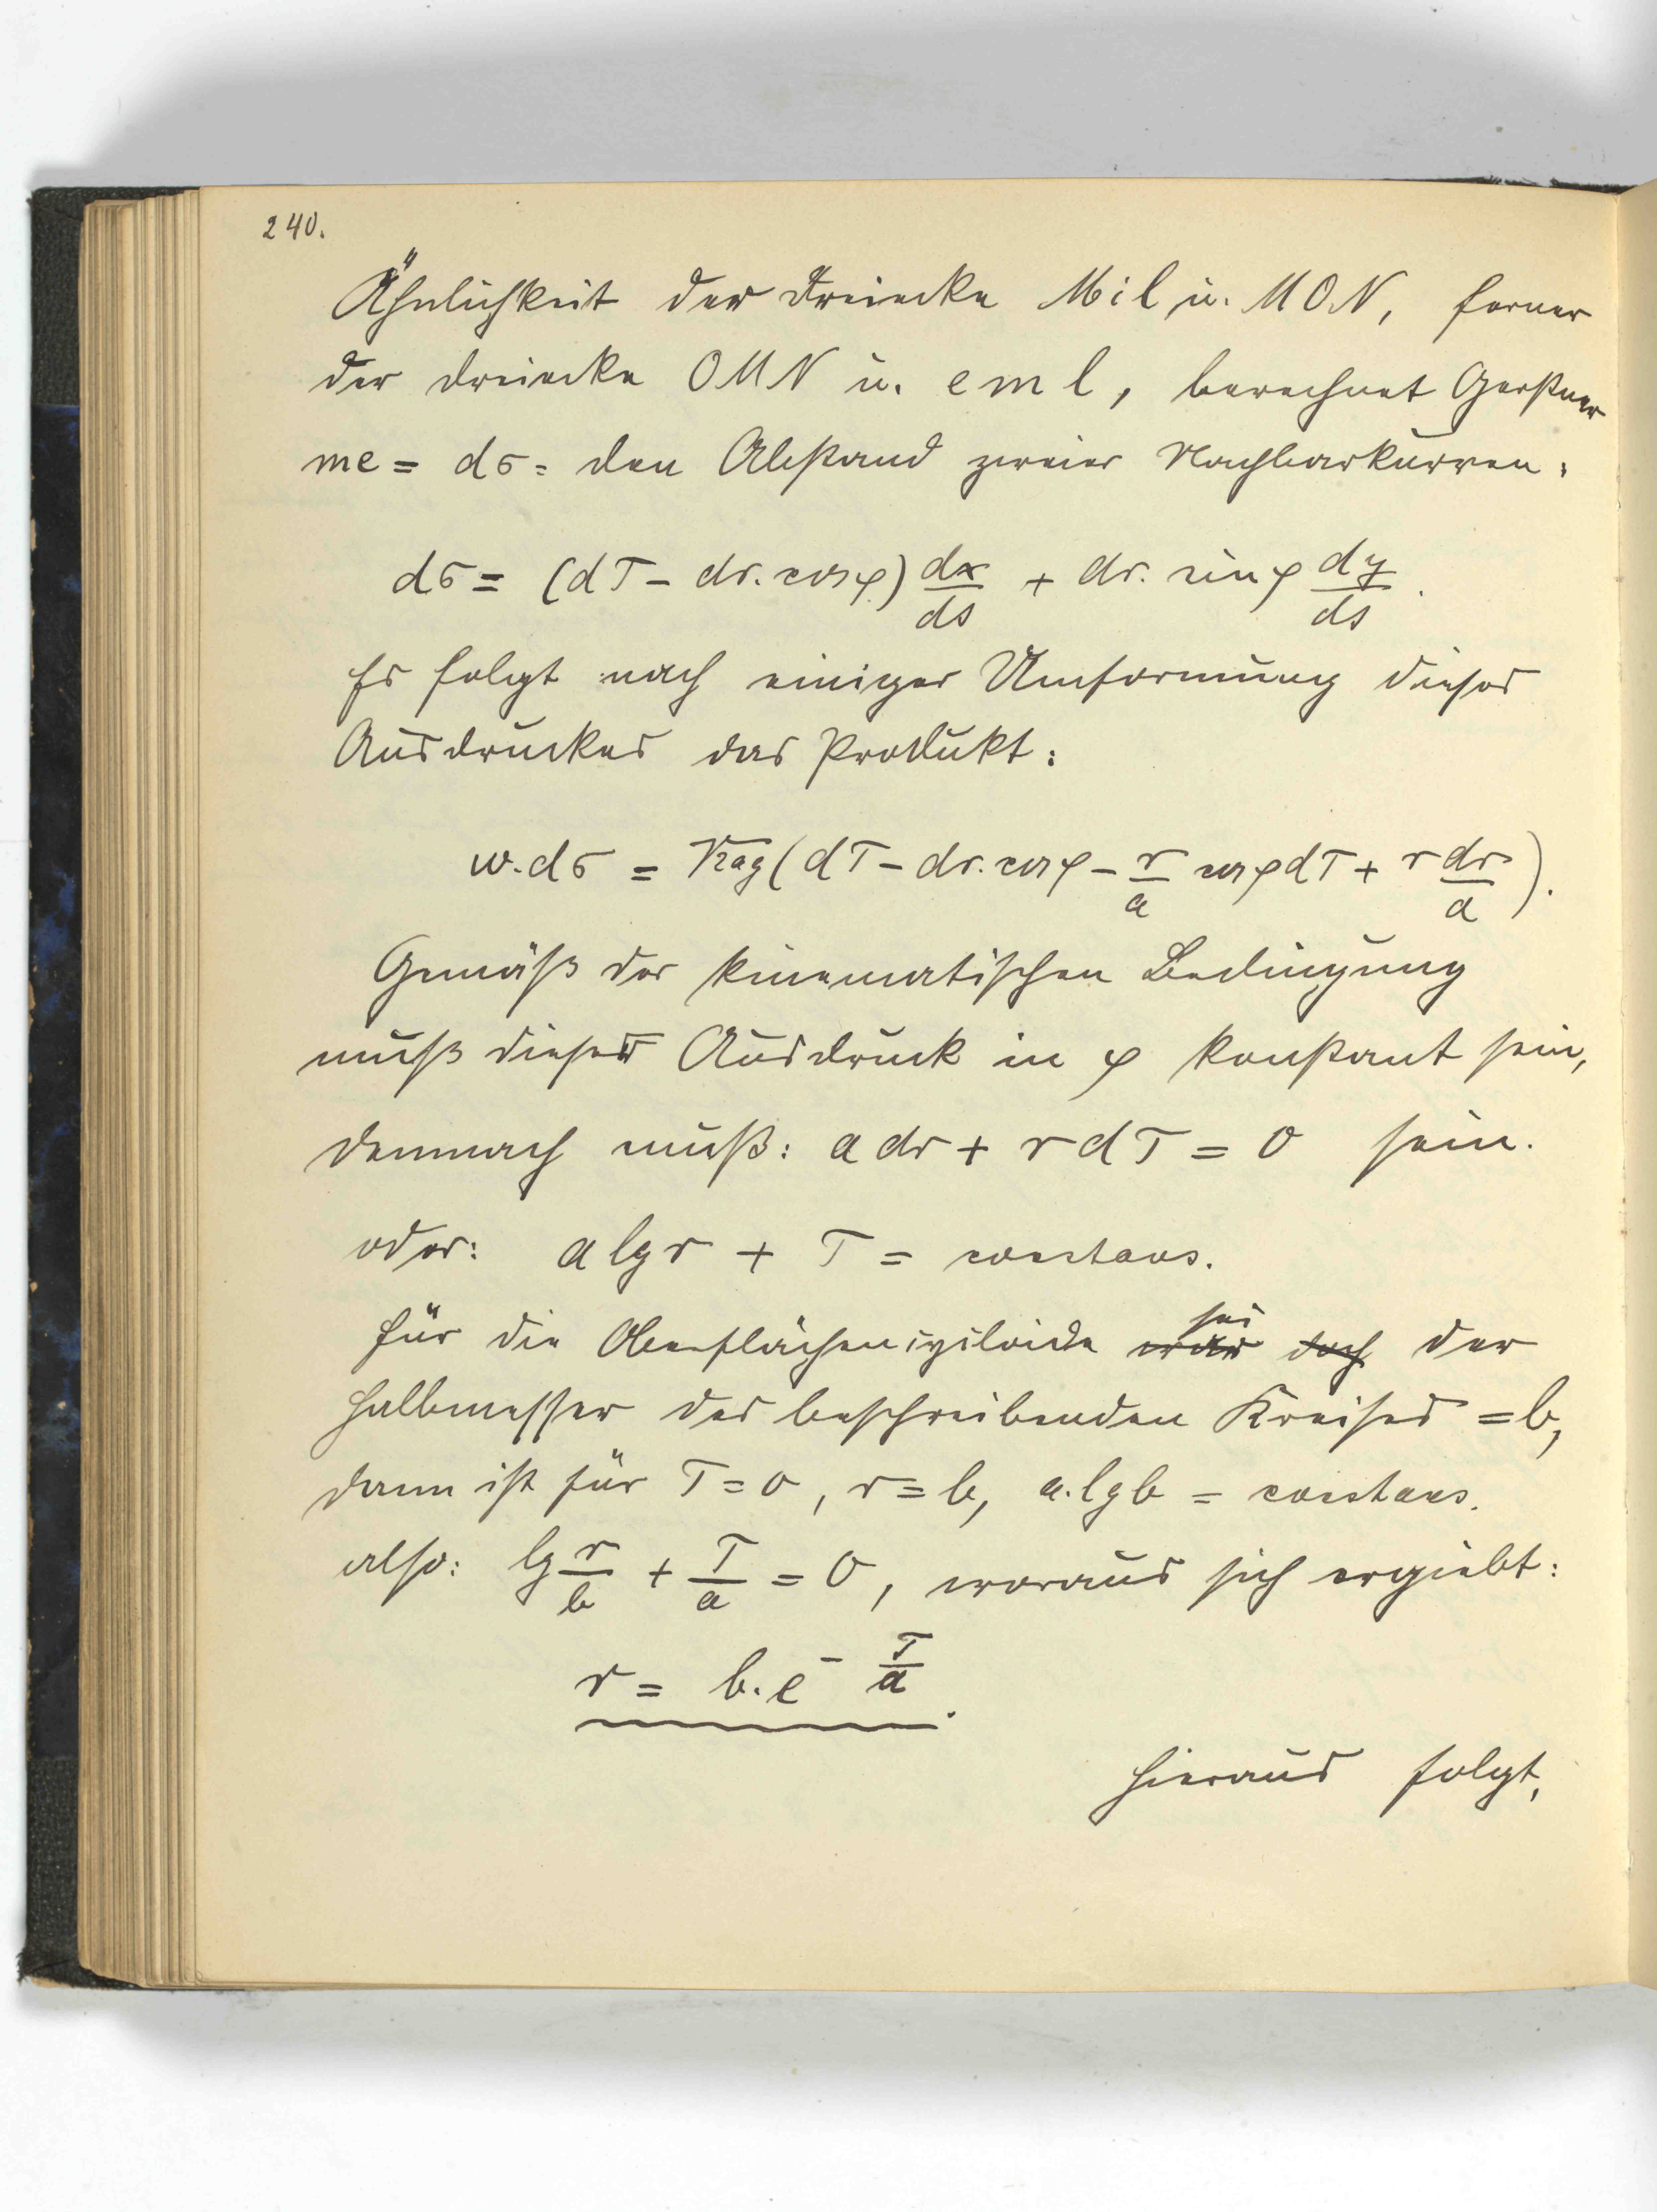 240.
Ähnlichkeit der Dreiecke Mil u. MON, ferner
der Dreiecke OMN u. eml, berechnet Gerstner
me = dσ = den Abstand zweier Nachbarkurven:
dσ = (dT - dr. cos φ) dx/ds + dr. sin φ dy/ds.
Es folgt nach einiger Umformung dieses
Ausdruckes das Produkt:
w. dσ = √2ag (dT - dr. cos φ - r/a cos φ dT + r dr/a).
Gemäß der kinematischen Bedingung
muß dieser Ausdruck in φ konstant sein,
demnach muß: a dr + r dT = 0 sein.
oder: a lg r + T = constans.
für die Oberflächenzykloide sei der
Halbmesser des beschreibenden Kreises = b,
dann ist für T = 0, r = b, a. lg b = constans.
also: lg r/b + T/a = 0, woraus sich ergiebt:
r = b. e^- T/a.
Hieraus folgt,